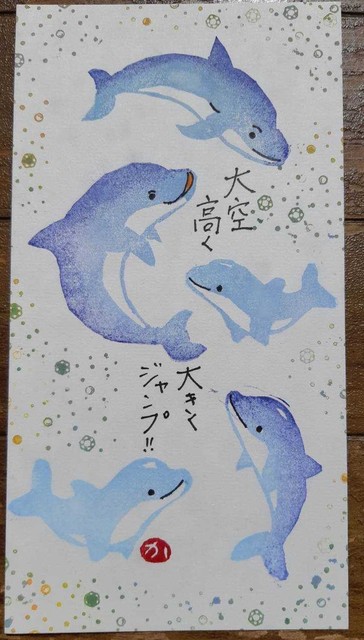 大空
高く
大きく
ジャンプ!!
か